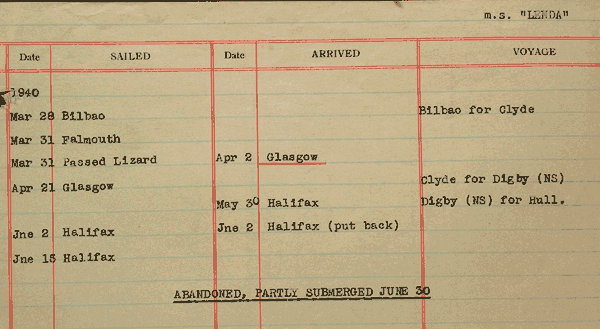 m.s. "LENDA"
Date SAILED Date ARRIVED VOYAGE
1940
Mar 28 Bilbao Bilbao for Clyde
Mar 31 Falmouth
Mar 31 Passed Lizard Apr 2 Glasgow
Apr 21 Glasgow Clyde for Digby (NS)
May 30 Halifax Digby (NS) for Hull.
Jne 2 Halifax Jne 2 Halifax (put back)
Jne 15 Halifax
ABANDONED, PARTLY SUBMERGED JUNE 30